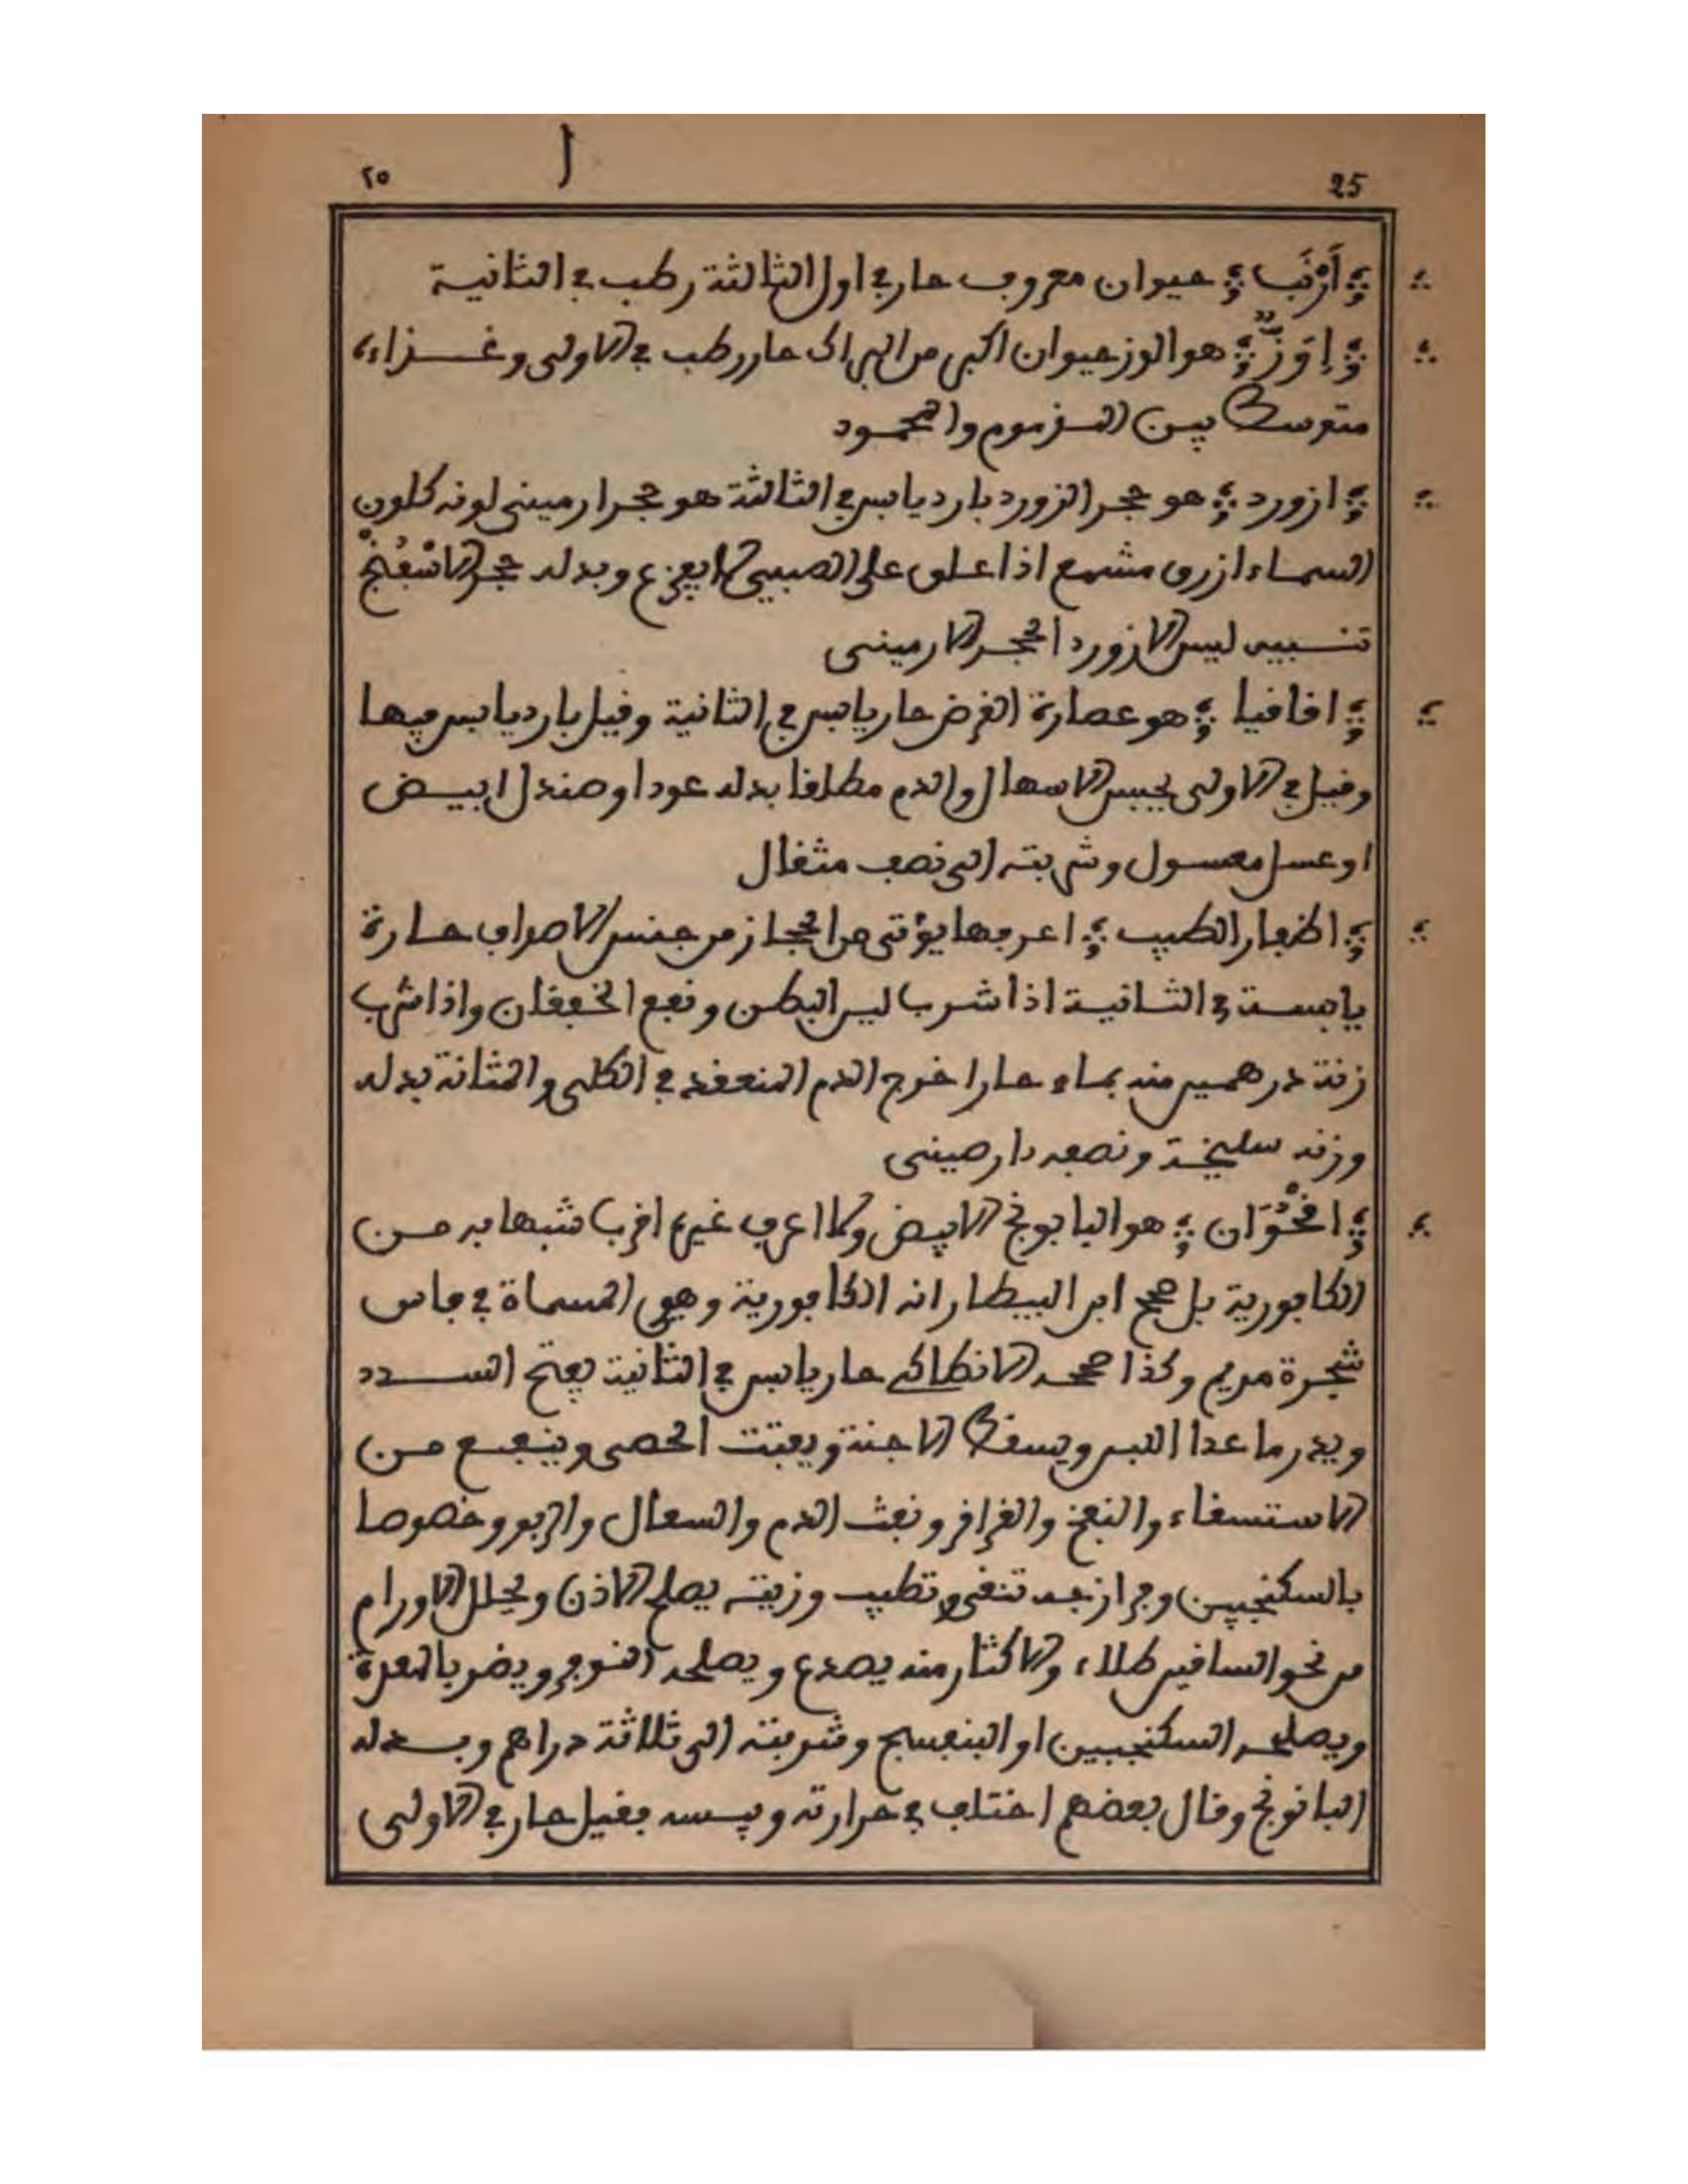 25 ا ٢٥
أَرْنَب حيوان معروف حار في اول الثالثة رطب في الثانية
إوَزّ هو الوز حيوان اكبر من البراك حار رطب في الاولى وغذاءه
متوسط بين المذموم والمحمود
ازورد هو حجر الزورد بارد يابس في الثالثة هو حجر ارميني لونه كلون
السماء ازرق مشمع اذا علق على الصبي لا يفزع وبدله حجر
تنبيه ليس الازورد الحجر الارميني
اقاقيا هو عصارة القرض حار يابس في الثانية وقيل بارد يابس فيها
وقيل في الاولى يحبس الاسهال والدم مطلقا بدله عود او صندل ابيض
او عسل مغسول وشربته الى نصف مثقال
اظفار الطيب اعرفها يؤتى من الحجاز من جنس الاصداف حارة
يابسة في الثانية اذا شرب لين البطن ونفع الخفقان واذا شرب
زنة درهمين منه بماء حار اخرج الدم المنعقد في الكلى والمثانة بدله
وزنه سليخة ونصفه دار صيني
اقْحُوَان هو البابونج الابيض ولا اعرف غيره اقرب شبها به من
الكافورية بل صحح ابن البيطار انه الكافورية وهي المسماة في فاس
شجرة مريم وكذا صححه الانطاكي حار يابس في الثانية يفتح السدد
ويدر ما عدا اللبن ويسقط الاجنة ويفتت الحصى وينفع من
الاستسقاء والنفخ والقراقر ونفث الدم والسعال والربو وخصوصا
بالسكنجبين وفرازجه تنقي وتطيب وزيته يصلح الاذن ويحلل الاورام
من نحو الساقين طلاء والاكثار منه يصدع ويصلحه النوم ويضر بالمعدة
ويصلحه السكنجبين او البنفسج وشربته الى ثلاثة دراهم وبدله
البانونج وقال بعضهم اختلف في حرارته ويبسه فقيل حار في الاولى